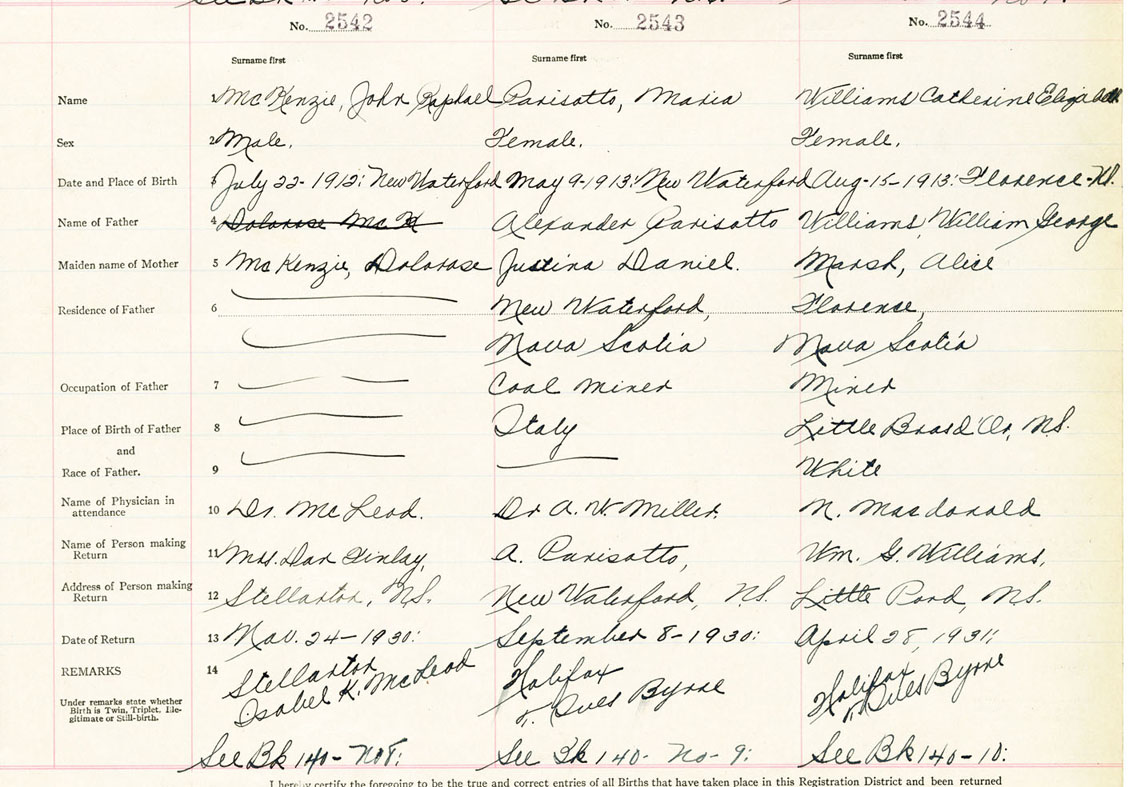 No. 2542 No. 2543 No. 2544
Surname first Surname first Surname first
Name 1 McKenzie, John Raphael Parisotto, Maria Williams Catherine Elizabeth
Sex 2 Male. Female. Female.
Date and Place of Birth 3 July 22-1912: New Waterford May 9-1913: New Waterford Aug-15-1913: Florence-
Name of Father 4 Dolorose McK Alexander Parisotto Williams, William George
Maiden name of Mother 5 McKenzie, Dolorose Justina Daniel. Marsh, Alice
Residence of Father 6 New Waterford, Florence,
Nova Scotia Nova Scotia
Occupation of Father 7 Coal Miner Miner
Place of Birth of Father 8 Italy Little Brasd'Or, N.S.
and
Race of Father. 9 White
Name of Physician in
attendance 10 Dr. McLeod. Dr A. W. Miller. N. Macdonald
Name of Person making
Return 11 Mrs. Dan Finlay, A. Parisotto, Wm. G. Williams,
Address of Person making
Return 12 Stellarton, N.S. New Waterford, N.S. Little Pond, N.S.
Date of Return 13 Nov. 24-1930: September 8-1930: April 28, 1931:
REMARKS 14 Stellarton Halifax Halifax
Isabel K. McLeod Byrne Byrne
Under remarks state whether
Birth is Twin, Triplet, Ille-
gitimate or Still-birth.
See Bk 140- No 8: See Bk 140- No-9: See Bk 140-10:
I hereby certify the foregoing to be the true and correct entries of all Births that have taken place in this Registration District and been returned